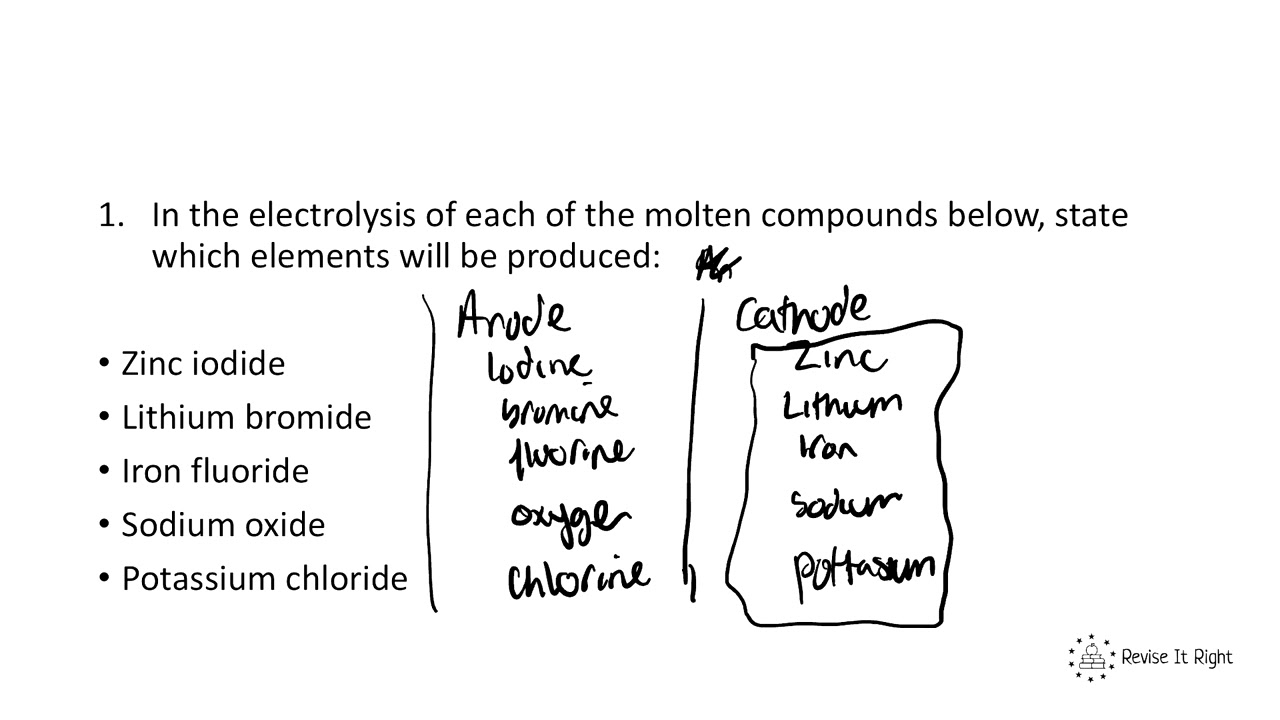 1. In the electrolysis of each of the molten compounds below, state
which elements will be produced:
Anode Cathode
• Zinc iodide Iodine Zinc
• Lithium bromide bromine Lithium
• Iron fluoride fluorine Iron
• Sodium oxide oxygen Sodium
• Potassium chloride chlorine pottasium
Revise It Right